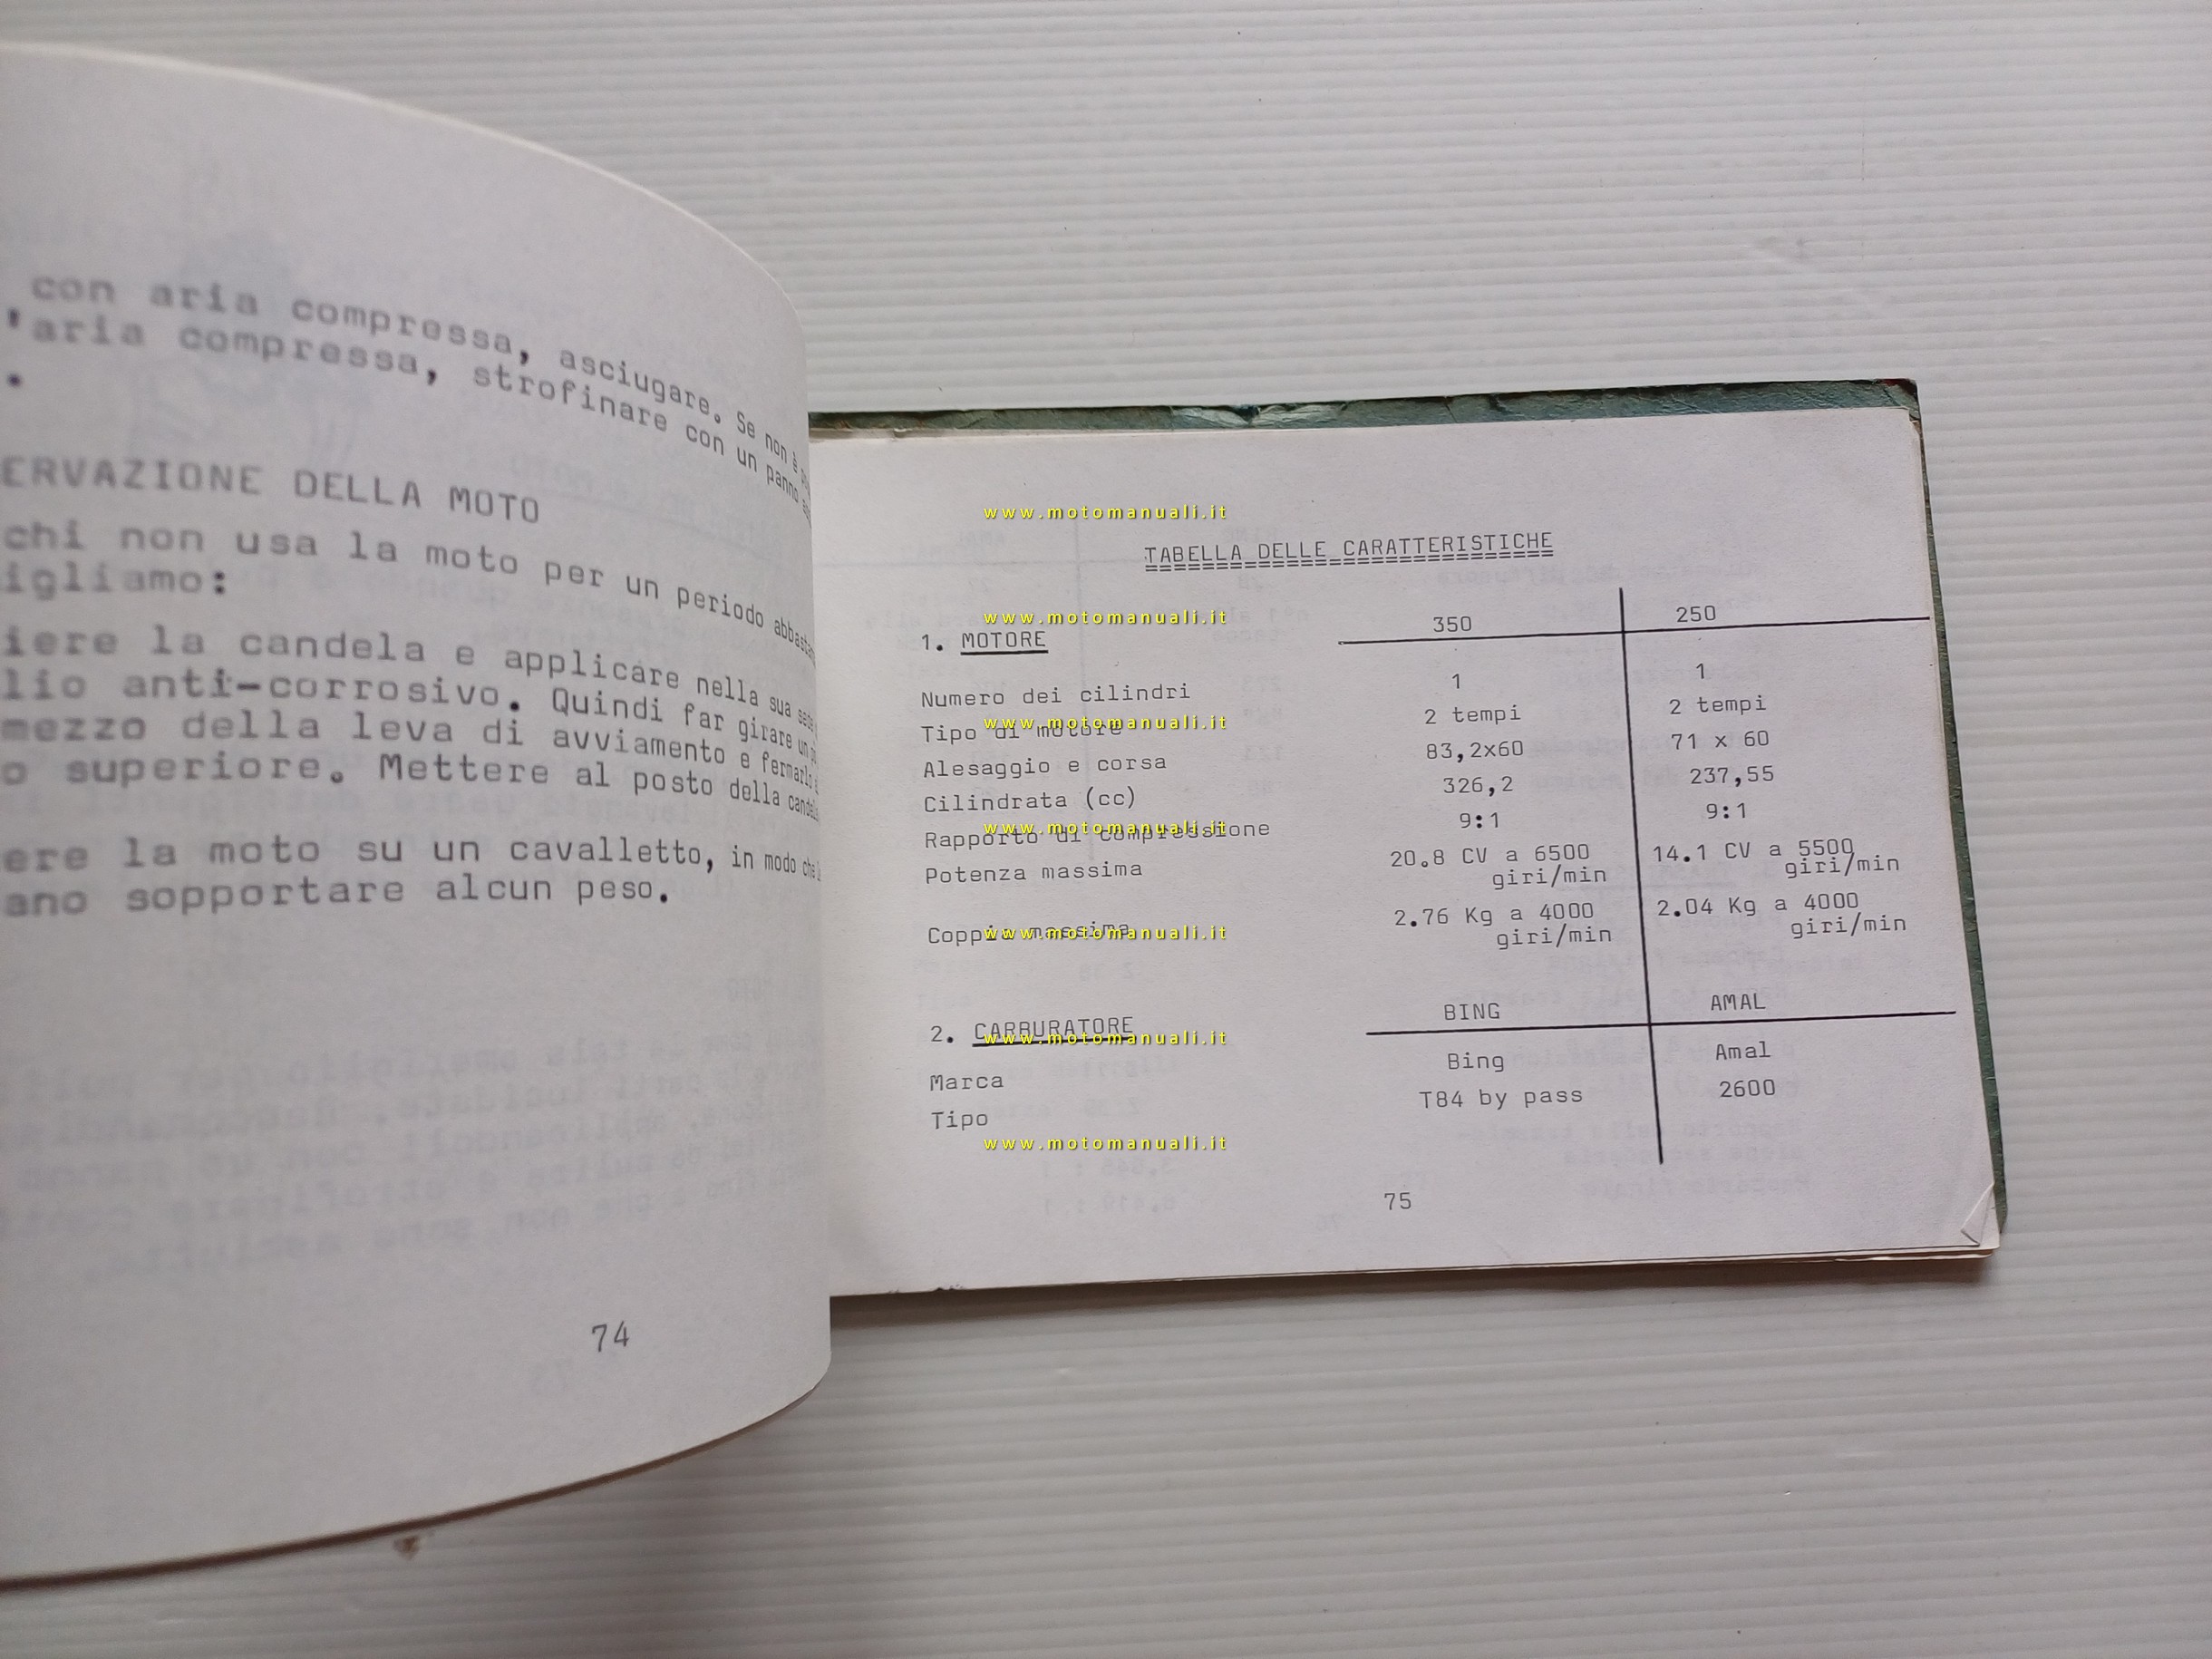 con aria compressa, asciugare. Se non è
'aria compressa, strofinare con un panno
.
ERVAZIONE DELLA MOTO
chi non usa la moto per un periodo
igliamo:
iere la candela e applicare nella sua
lio anti-corrosivo. Quindi far girare un
mezzo della leva di avviamento e fermarlo
o superiore. Mettere al posto della
ere la moto su un cavalletto, in modo che
ano sopportare alcun peso.
74
www.motomanuali.it
TABELLA DELLE CARATTERISTICHE
www.motomanuali.it
1. MOTORE 350 250
Numero dei cilindri 1 1
www.motomanuali.it
Tipo di motore 2 tempi 2 tempi
Alesaggio e corsa 83,2x60 71 x 60
Cilindrata (cc) 326,2 237,55
www.motomanuali.it
Rapporto di compressione 9:1 9:1
Potenza massima 20.8 CV a 6500 giri/min 14.1 CV a 5500 giri/min
www.motomanuali.it
Coppia massima 2.76 Kg a 4000 giri/min 2.04 Kg a 4000 giri/min
2. CARBURATORE BING AMAL
www.motomanuali.it
Marca Bing Amal
Tipo T84 by pass 2600
www.motomanuali.it
75